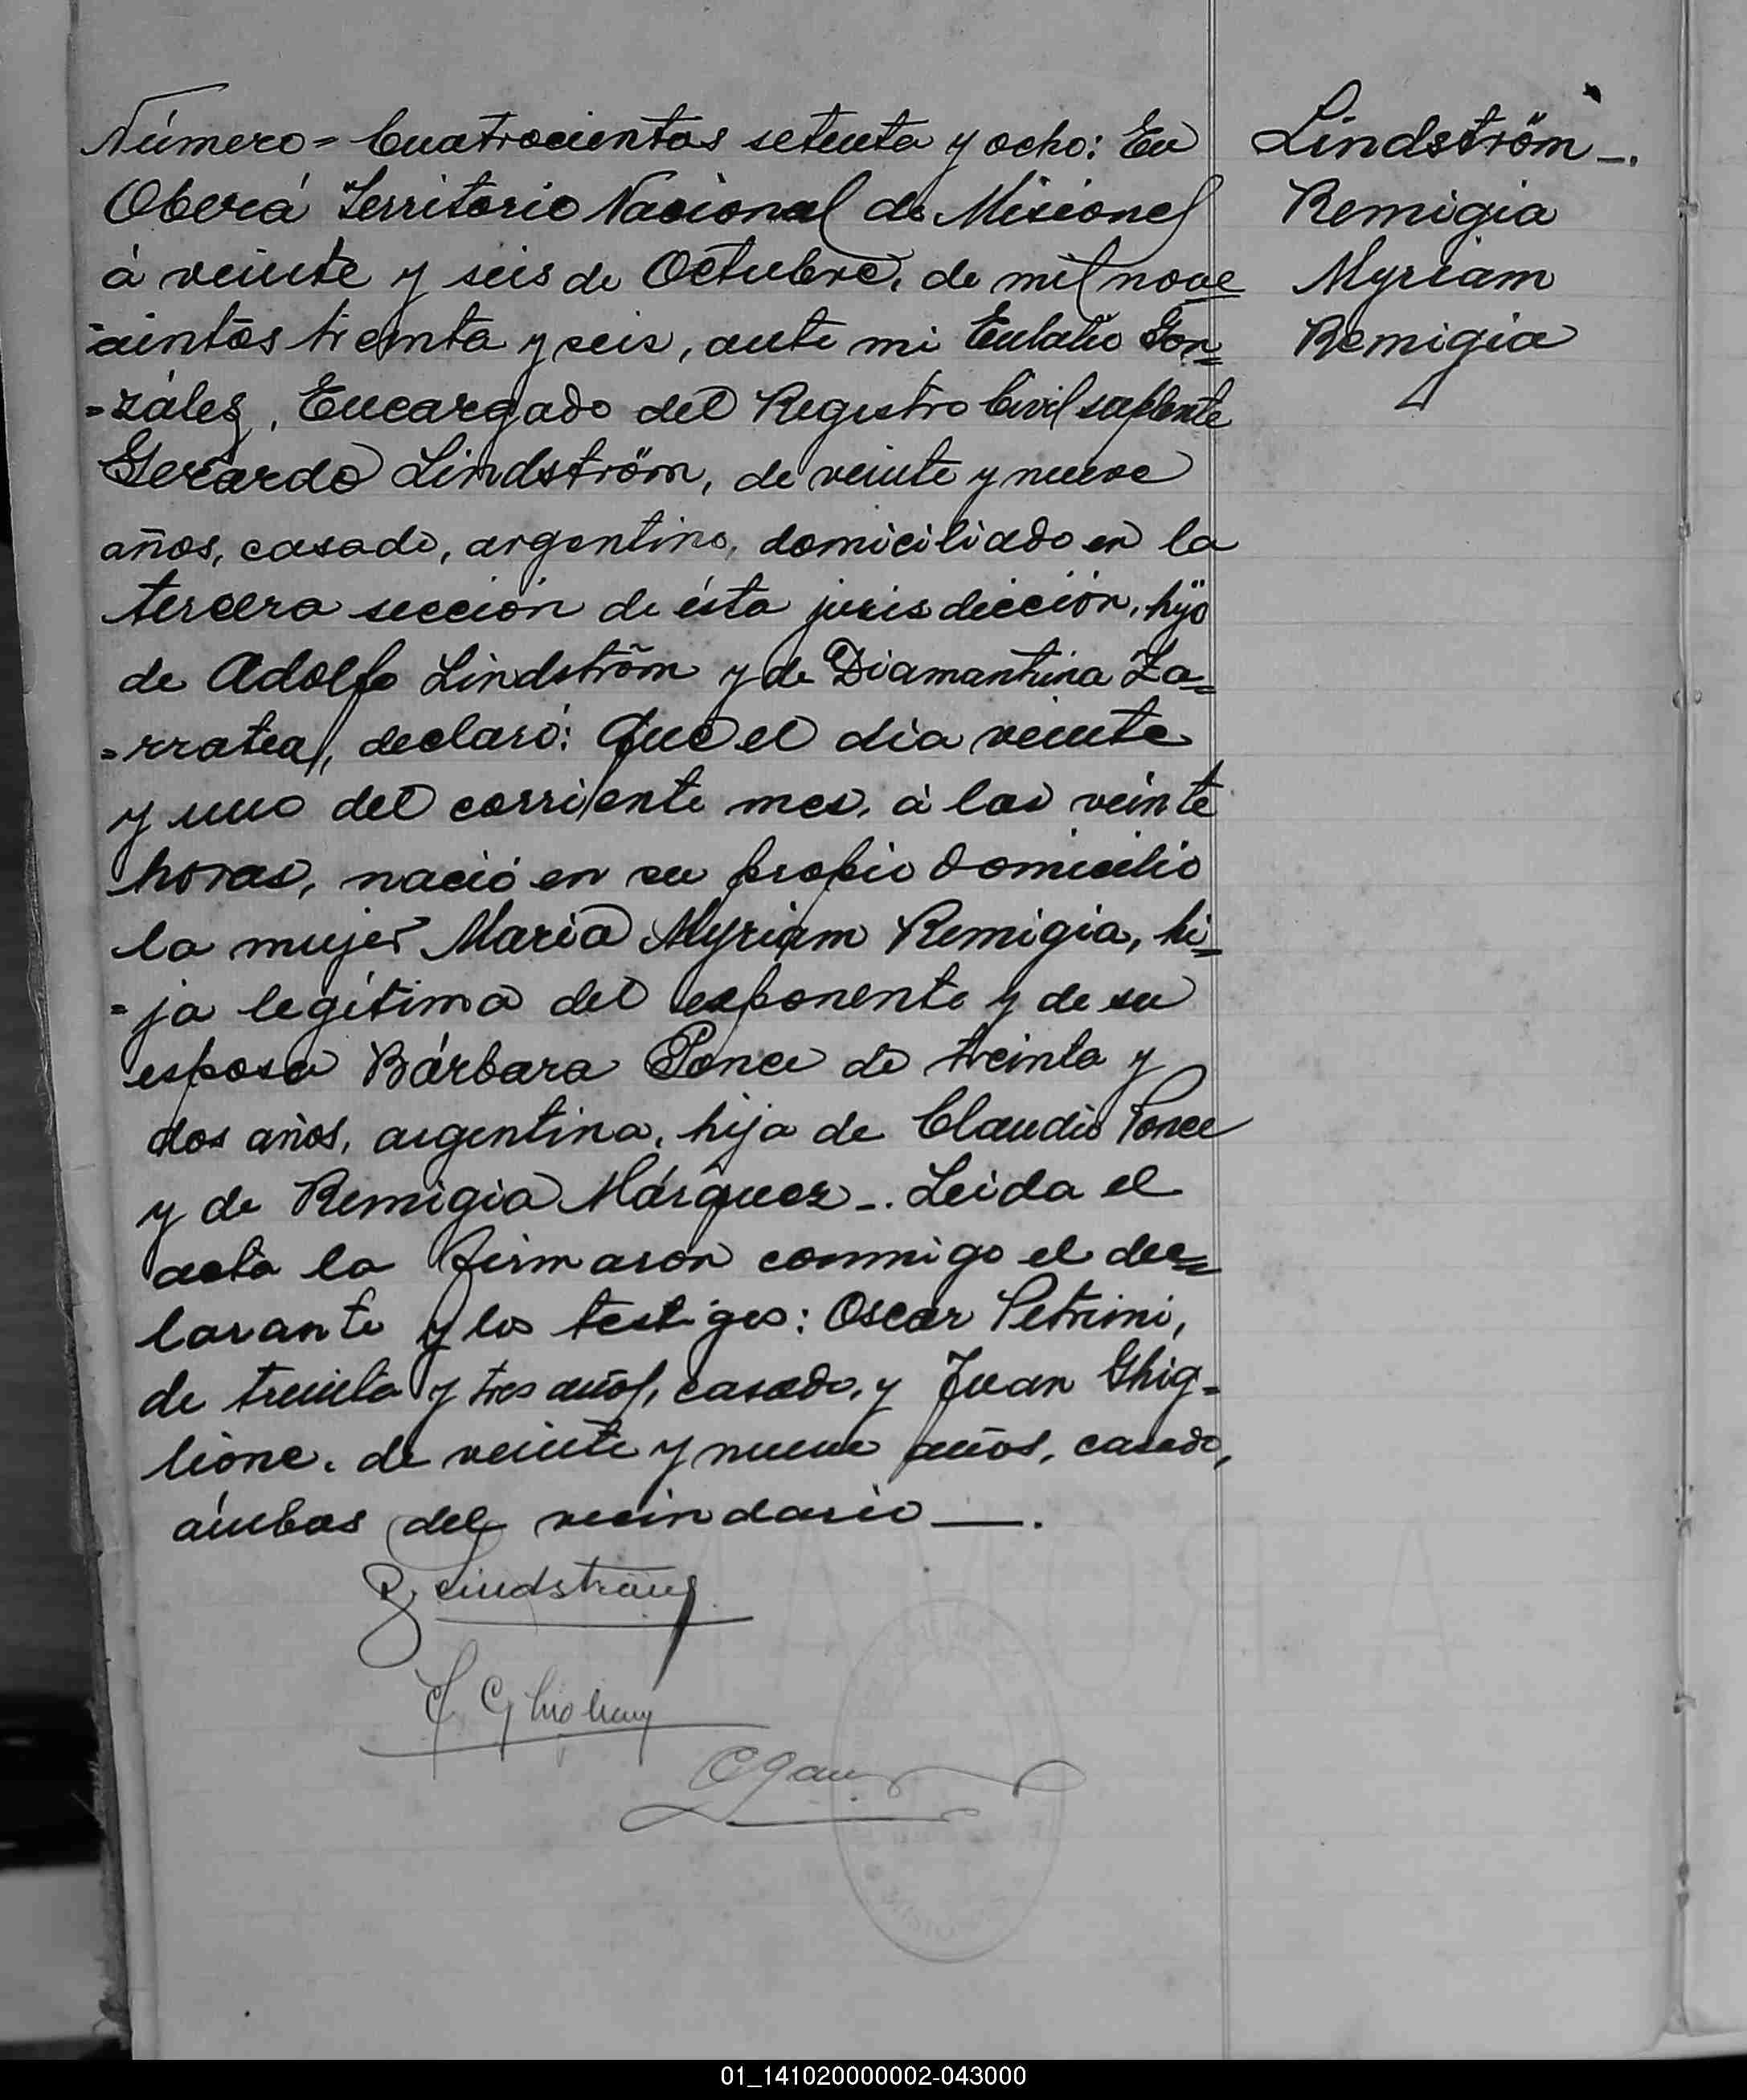 Número = Cuatrocientos setenta y ocho: En
Oberá Territorio Nacional de Misiones
á veinte y seis de Octubre, de mil nove
=cientos treinta y seis, ante mi Eulalio Gon=
=zález, Encargado del Registro Civil suplente
Gerardo Lindström, de veinte y nueve
años, casado, argentino, domiciliado en la
tercera sección de ésta jurisdicción, hijo
de Adolfo Lindström y de Diamantina La=
=rratea, declaró: Que el dia veinte
y uno del corriente mes, á las veinte
horas, nació en su propio domicilio
la mujer Maria Myriam Remigia, hi=
=ja legítima del exponente y de su
esposa Bárbara Ponce de treinta y
dos años, argentina, hija de Claudio Ponce
y de Remigia Márquez_. Leida el
acta la firmaron conmigo el dec=
larante y los testigos: Oscar Petrini,
de treinta y tres años, casado, y Juan Ghig=
lione, de veinte y nueve años, casado,
ámbos del vecindario_.
Lindström
Lindström_.
Remigia
Myriam
Remigia
01_141020000002-043000